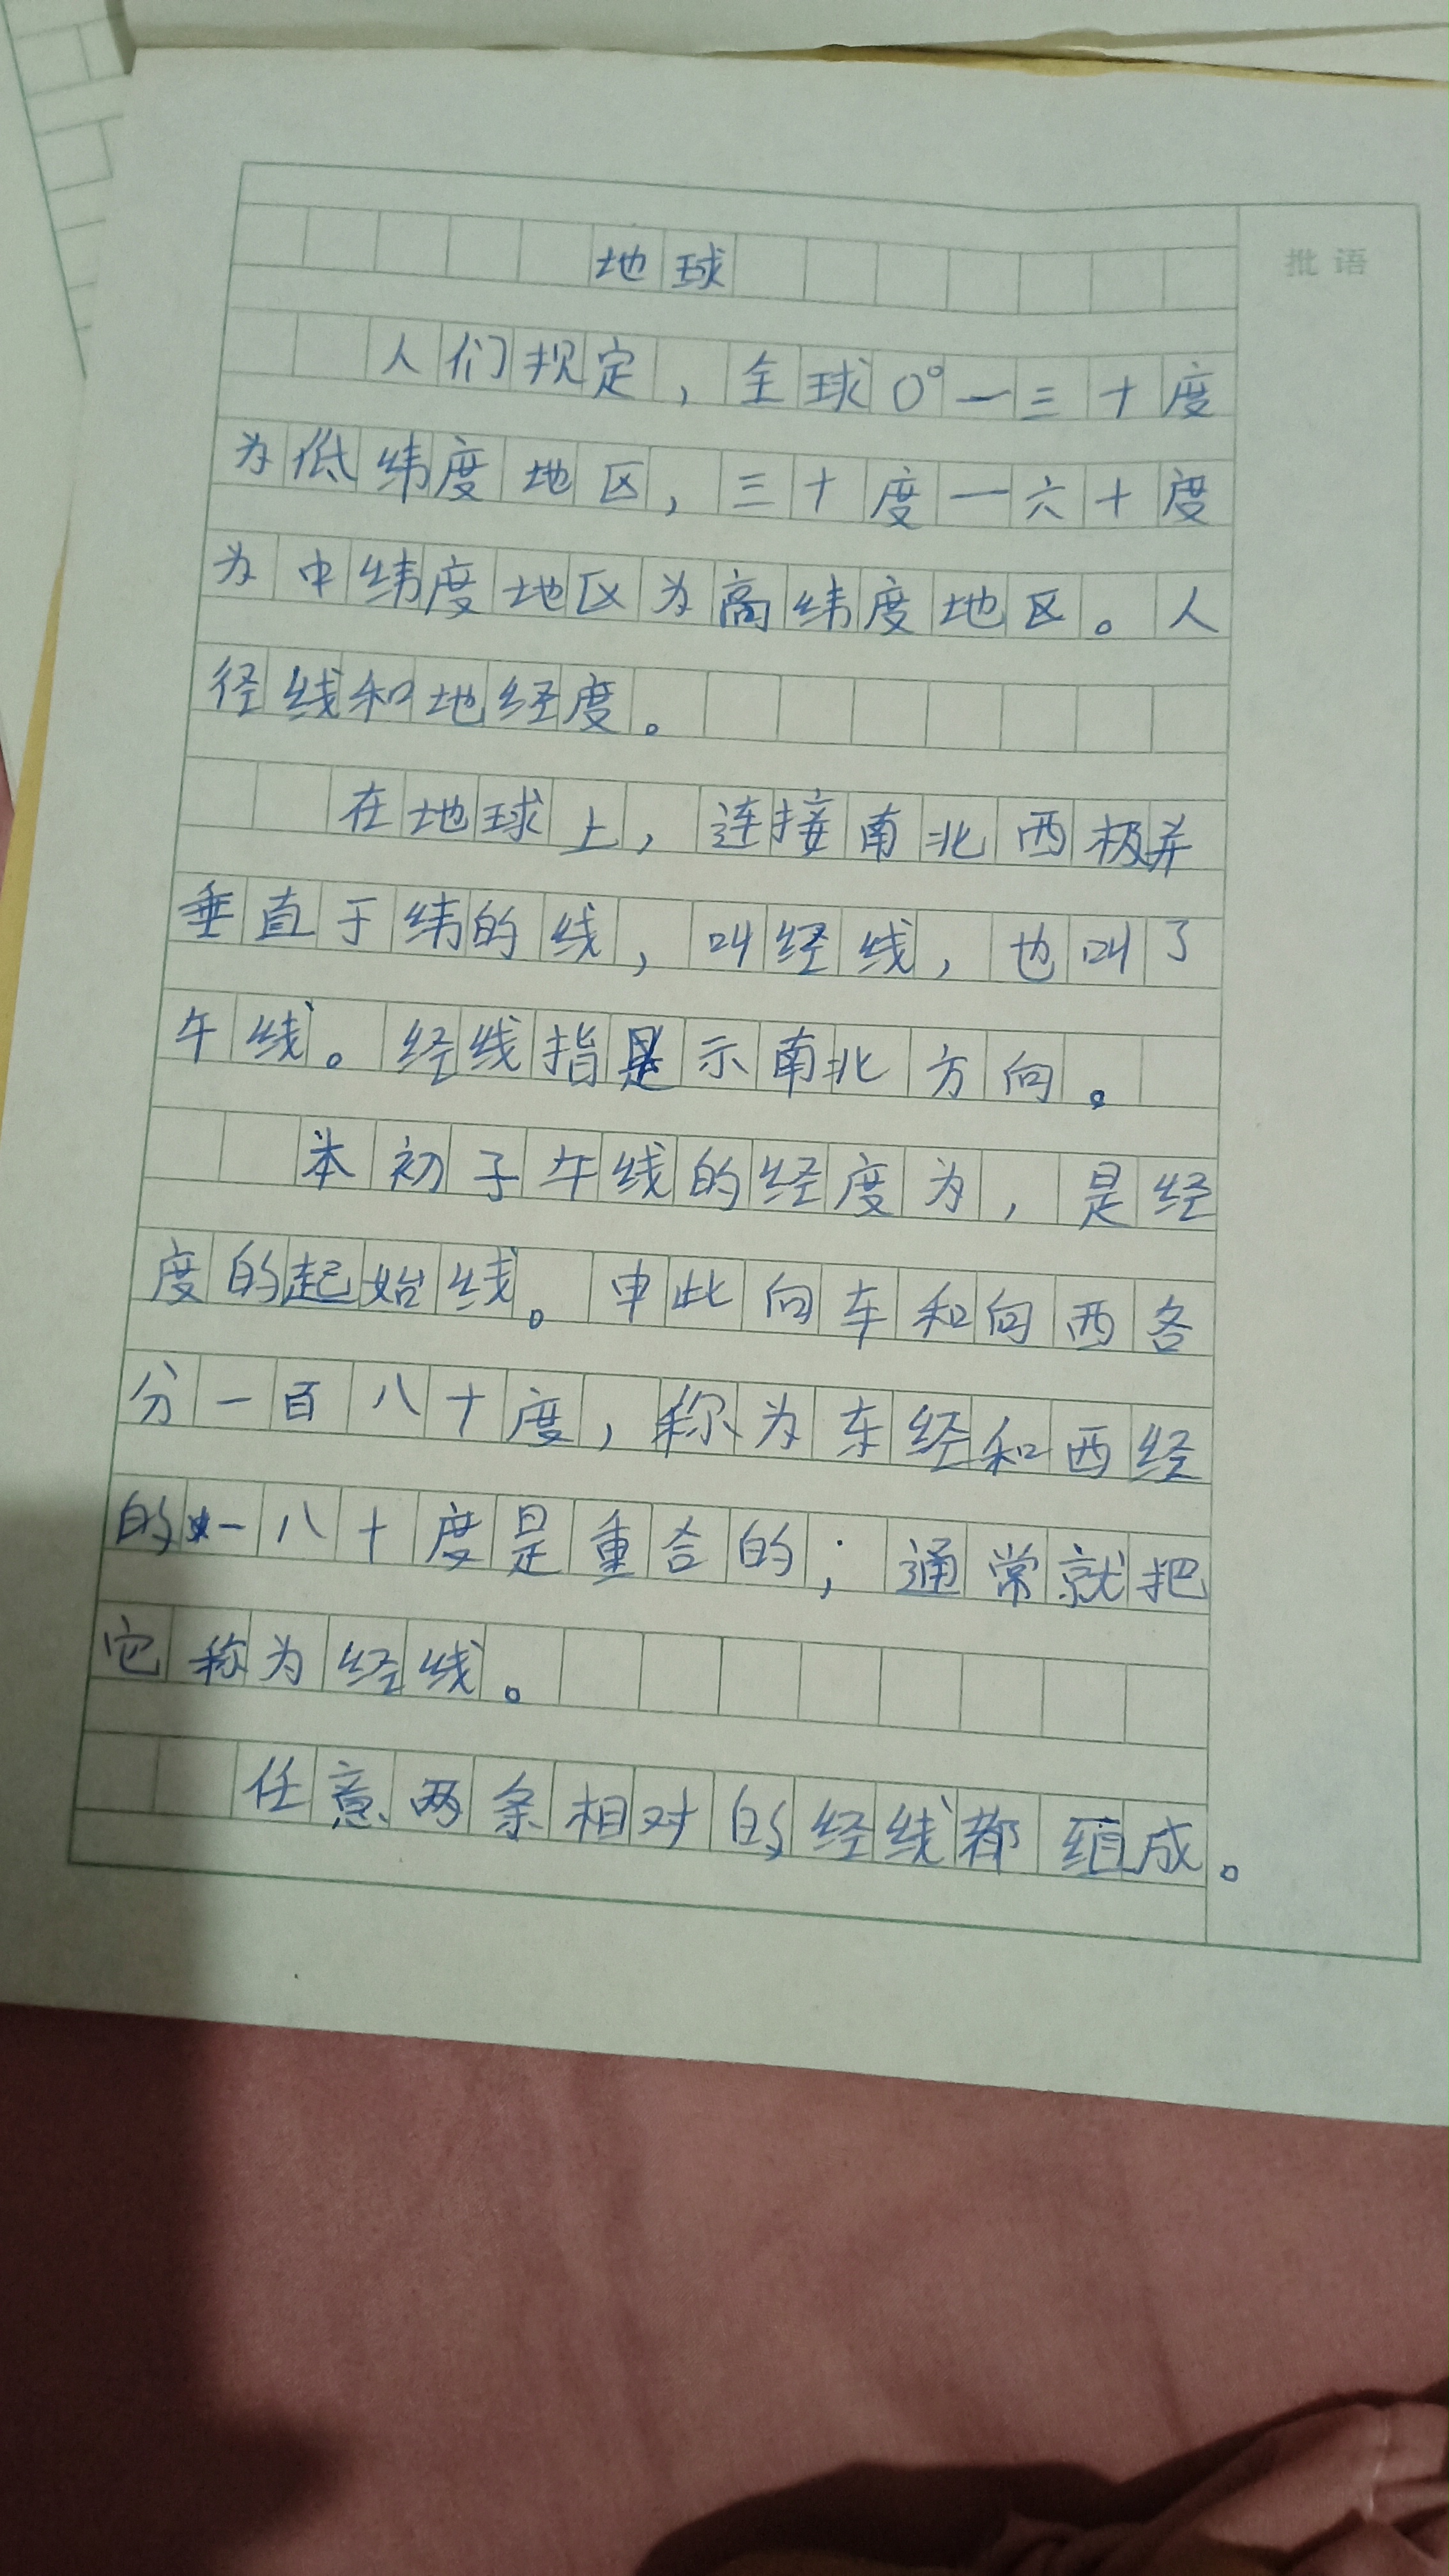 地球
批语
人们规定，全球0°一三十度
为低纬度地区，三十度一六十度
为中纬度地区为高纬度地区。人
径线和地经度。
在地球上，连接南北西极并
垂直于纬的线，叫经线，也叫了
午线。经线指示南北方向。
本初子午线的经度为，是经
度的起始线。申此向车和向西各
分一百八十度，称为东经和西经
的一八十度是重合的；通常就把
它称为经线。
任意两条相对的经线都组成。